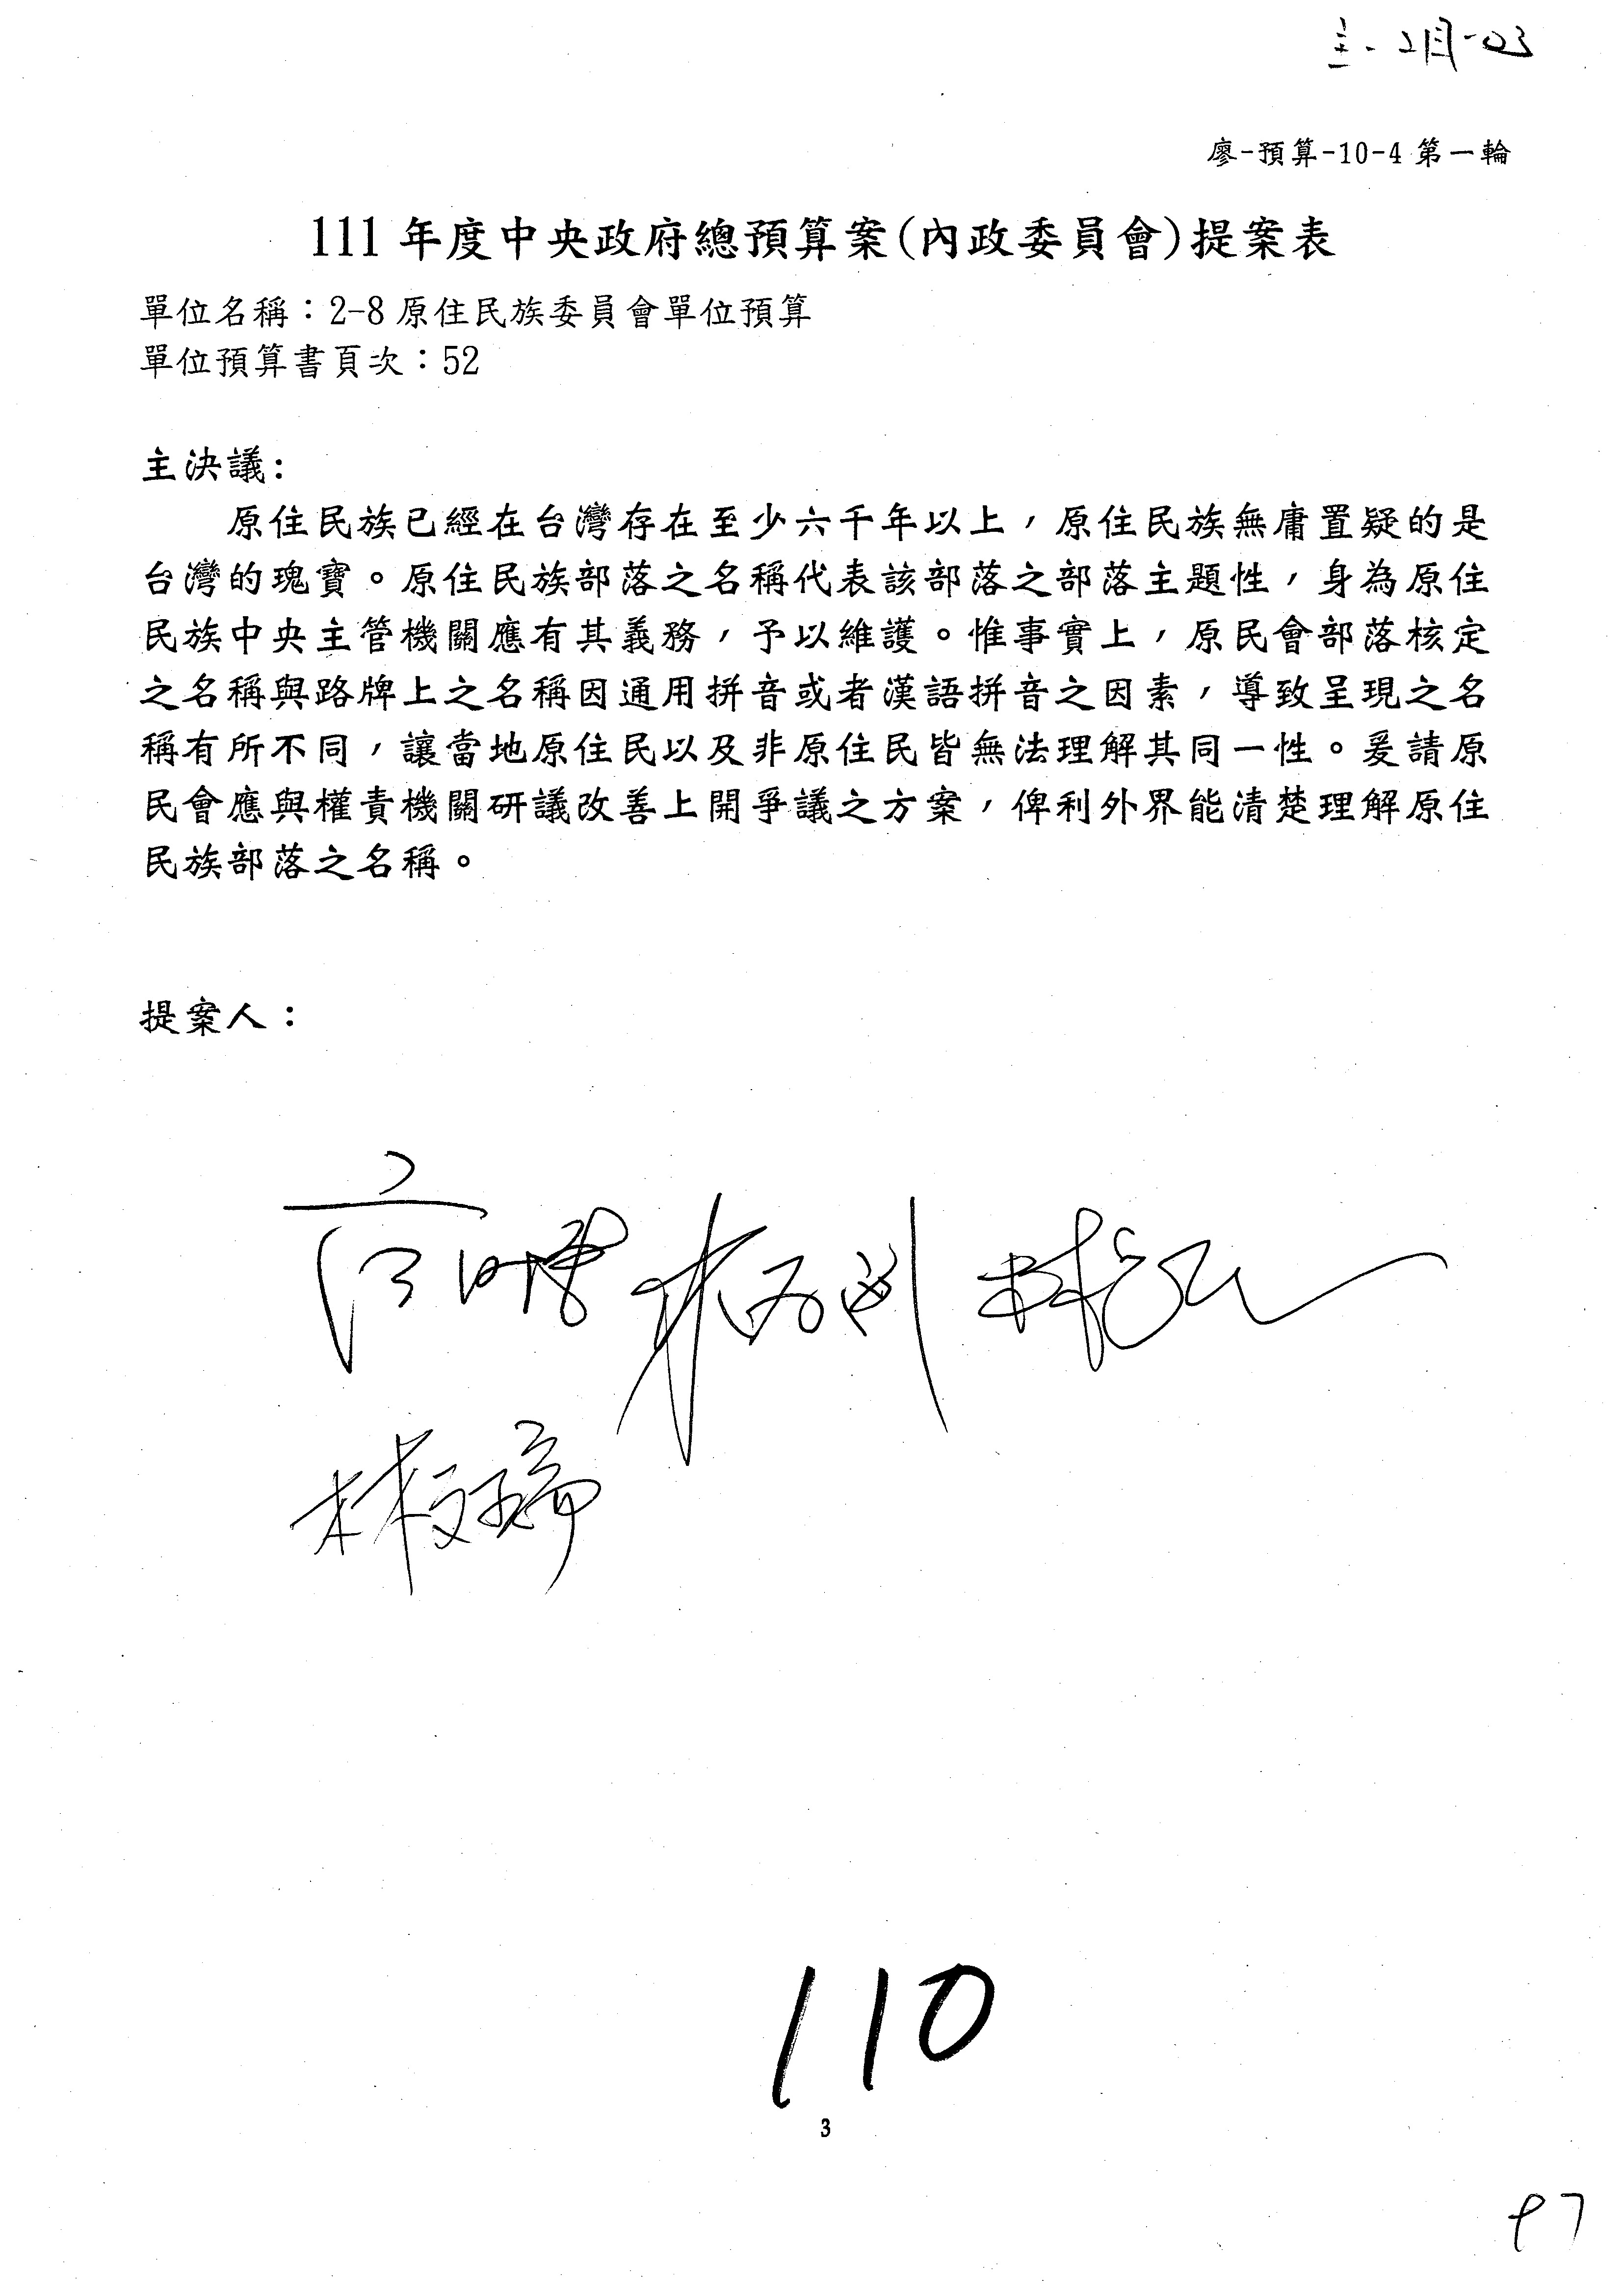 廖-預算-10-4 第一輪
111 年度中央政府總預算案(內政委員會)提案表
單位名稱：2-8 原住民族委員會單位預算
單位預算書頁次：52
主決議:
原住民族已經在台灣存在至少六千年以上，原住民族無庸置疑的是
台灣的瑰寶。原住民族部落之名稱代表該部落之部落主題性，身為原住
民族中央主管機關應有其義務，予以維護。惟事實上，原民會部落核定
之名稱與路牌上之名稱因通用拼音或者漢語拼音之因素，導致呈現之名
稱有所不同，讓當地原住民以及非原住民皆無法理解其同一性。爰請原
民會應與權責機關研議改善上開爭議之方案，俾利外界能清楚理解原住
民族部落之名稱。
提案人：
110
3
97